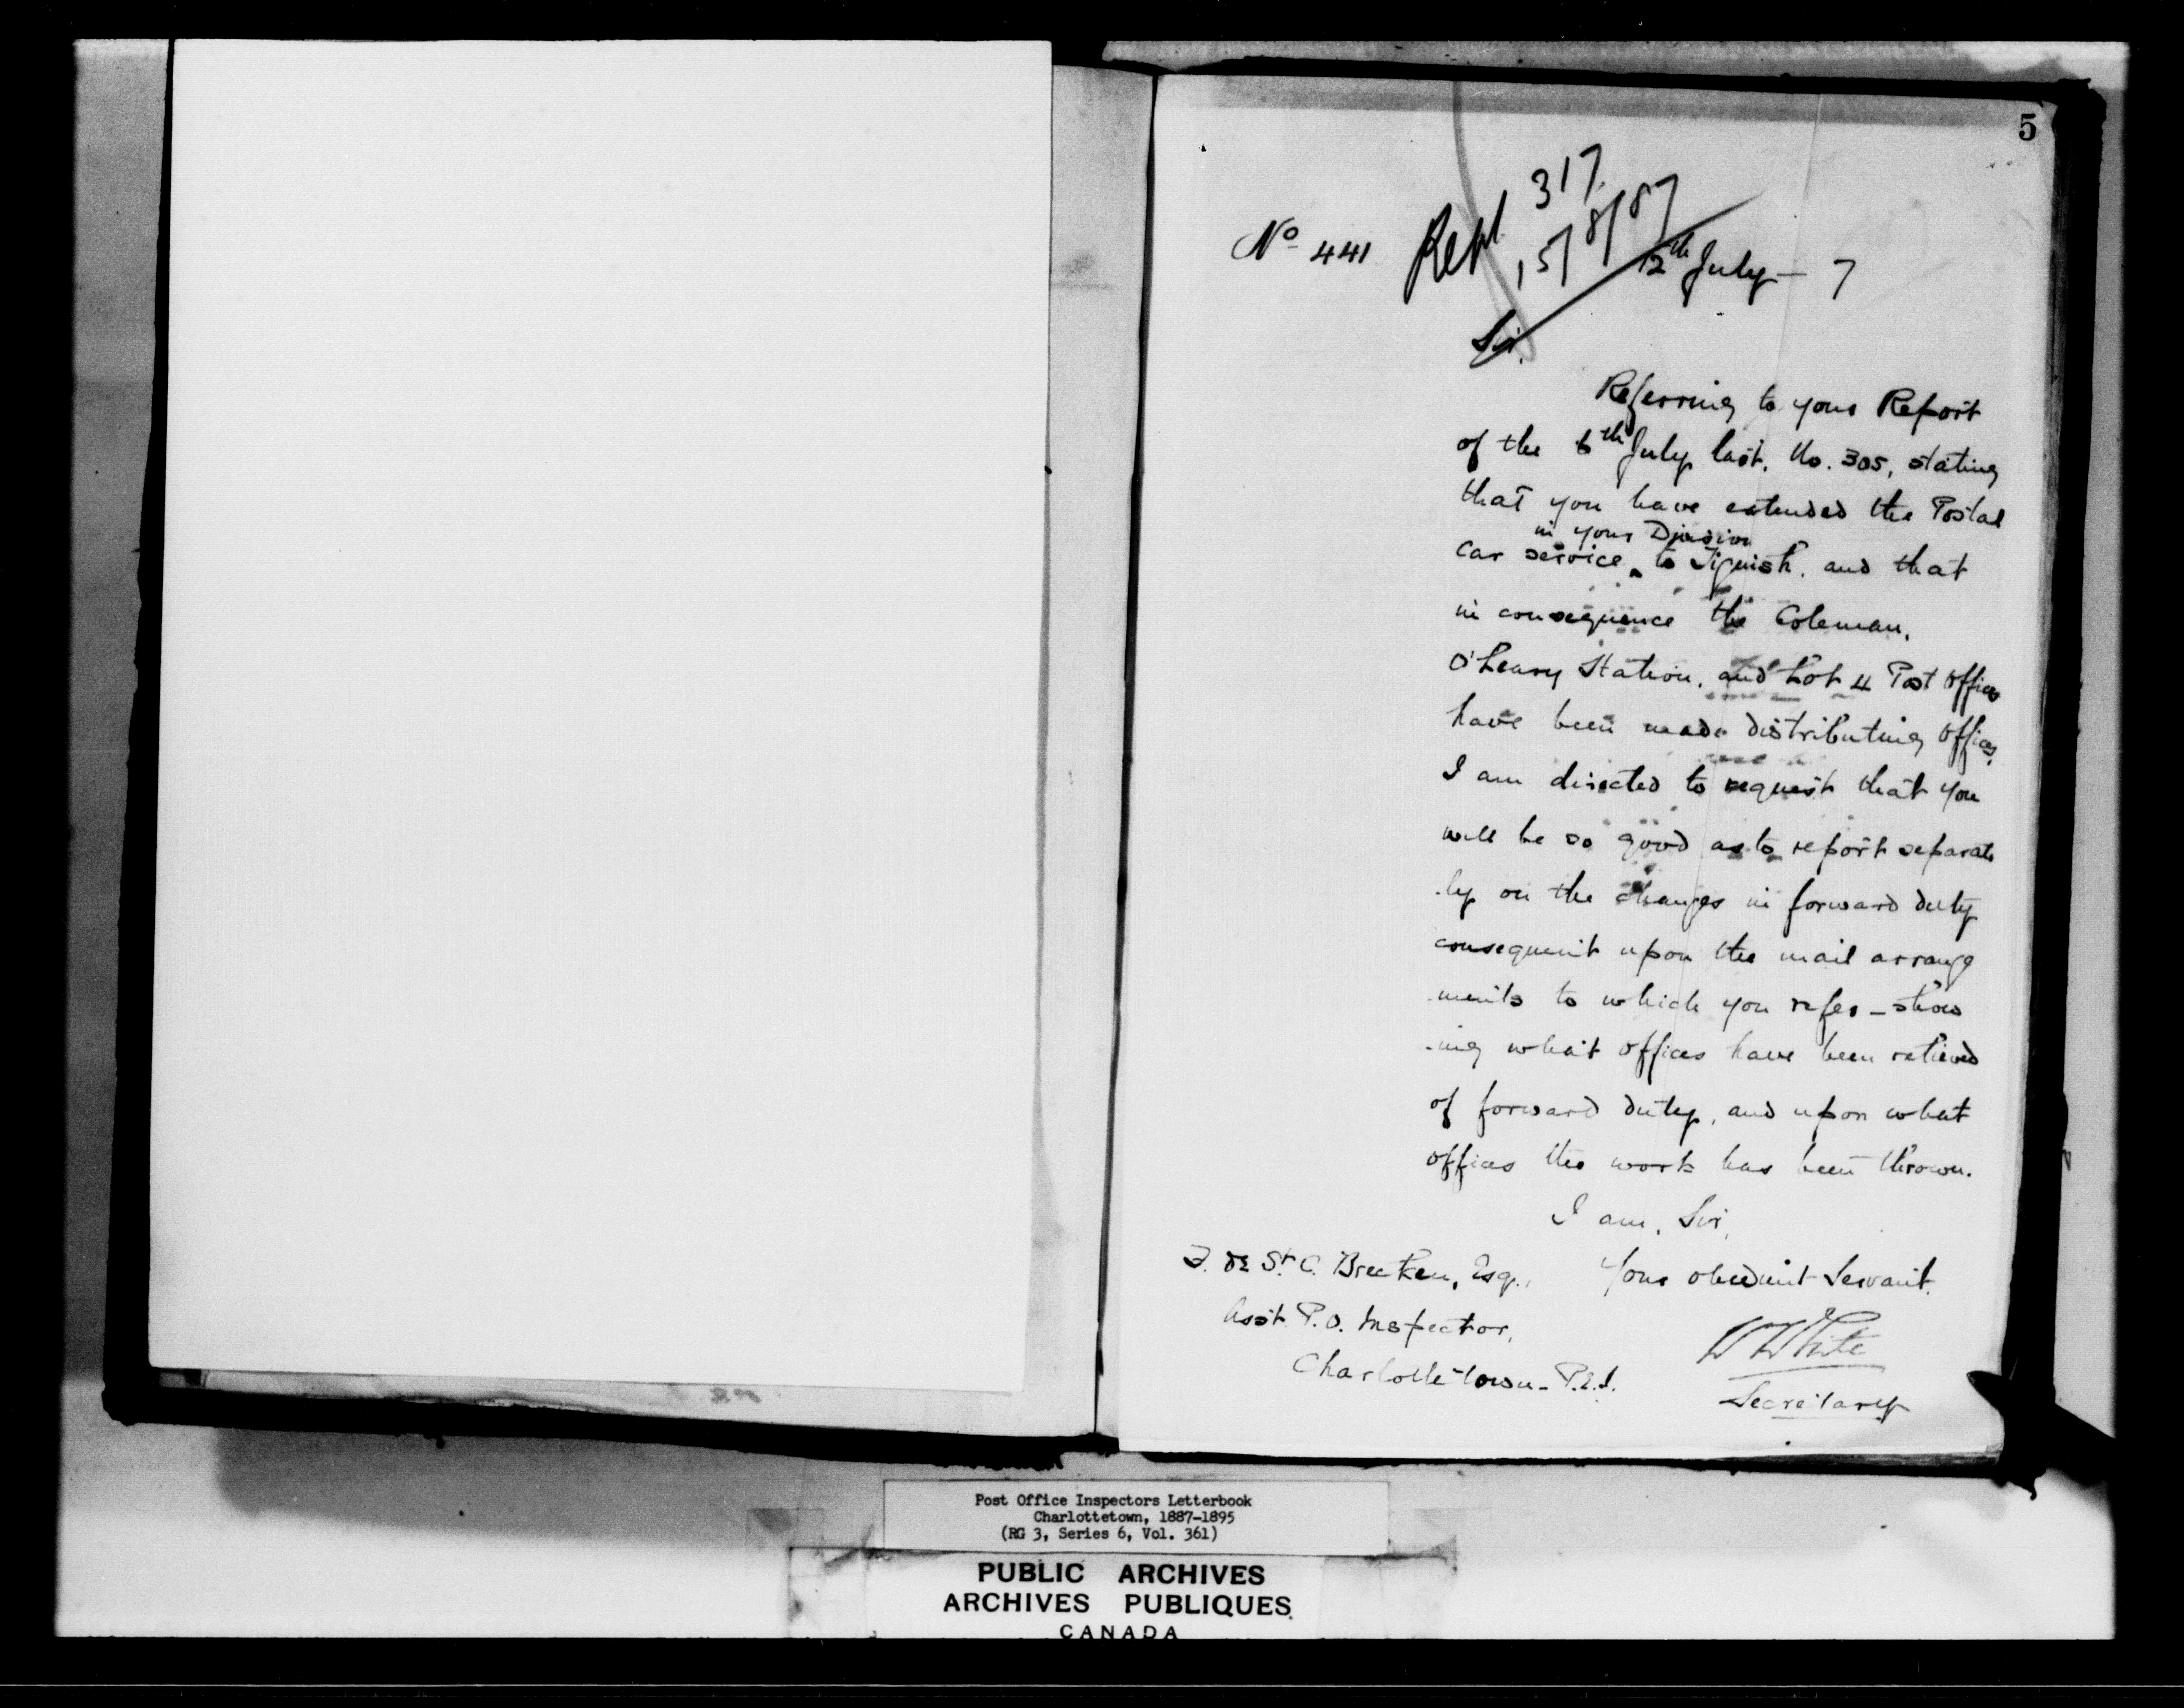 5
317
No 441 Rept 15/8/87
12th July - 7
Sir,
Referring to your Report
of the 6th July last, No. 305, stating
that you have extended the Postal
in your Division
car service ‸ to Tignish, and that
in consequence the Coleman,
O'Leary Station, and Lot 4 Post Offices
have been made distributing Offices,
I am directed to request that you
will be so good as to report separate
-ly on the changes in forward duty
consequent upon the mail arrange
-ments to which you refer - show
-ing what offices have been relieved
of forward duty, and upon what
offices the work has been thrown.
I am, Sir,
Your obedient Servant,
F. de St. C. Brecken, Esq.,
Asst. P.O. Inspector,
Charlottetown - P.E.I.
W White
Secretary
Post Office Inspectors Letterbook
Charlottetown, 1887-1895
(RG 3, Series 6, Vol. 361)
PUBLIC ARCHIVES
ARCHIVES PUBLIQUES
CANADA